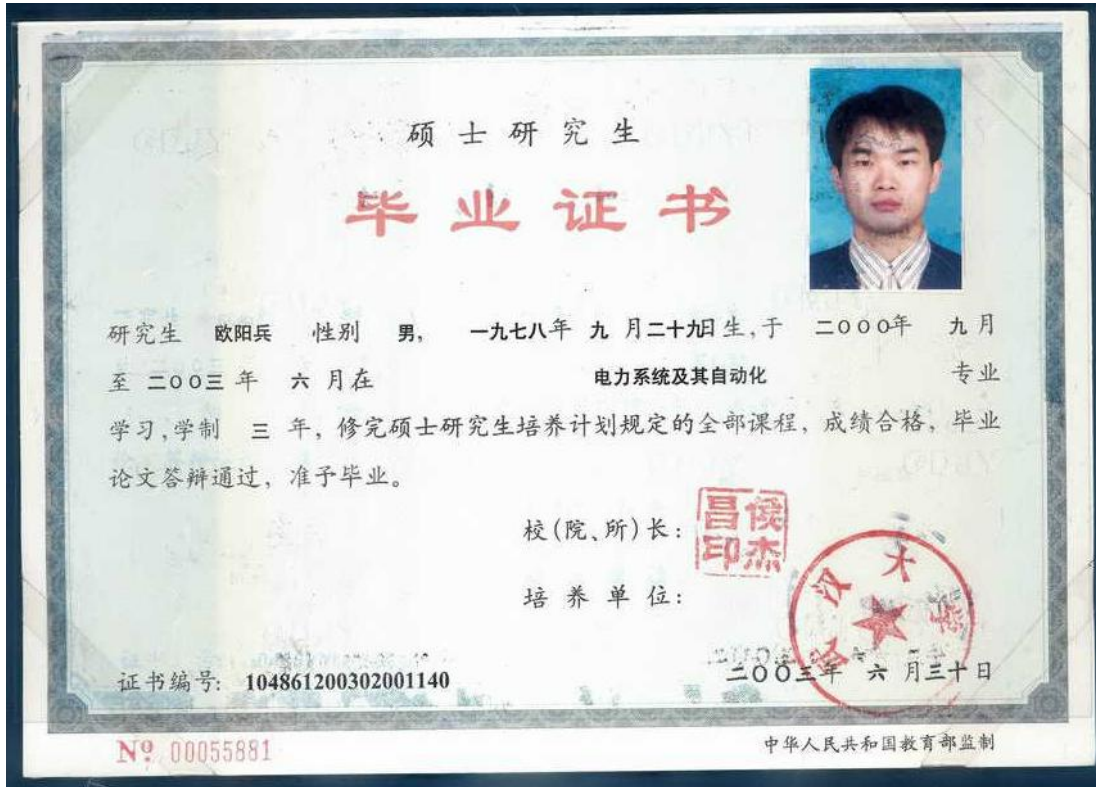 硕士研究生
毕业证书
研究生 欧阳兵 性别 男， 一九七八年 九 月二十九日生,于 二000年 九月
至 二00三 年 六 月在 电力系统及其自动化 专业
学习,学制 三 年，修完硕士研究生培养计划规定的全部课程，成绩合格，毕业
论文答辩通过，准予毕业。
校(院、所)长：
侯杰昌印
培养单位：
武汉大学
证书编号： 104861200302001140
二00三年 六 月三十日
№ 00055881
中华人民共和国教育部监制